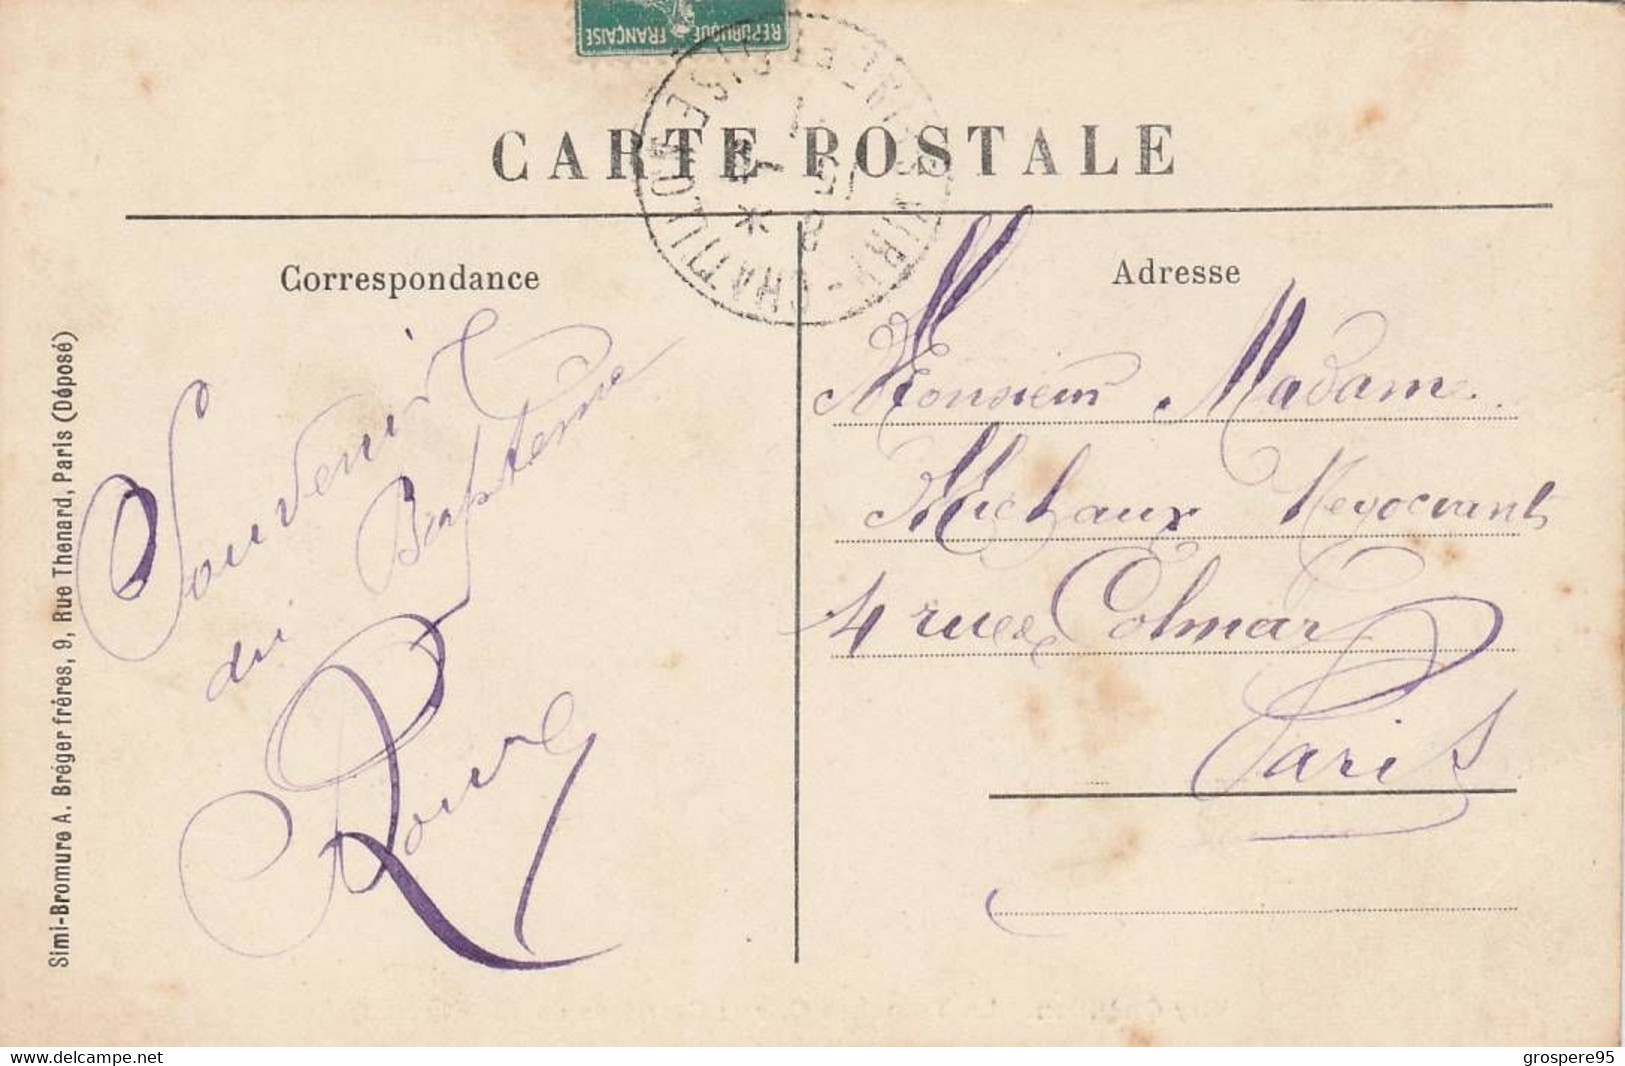 REPUBLIQUE FRANÇAISE
CARTE POSTALE
VIRY-CHATILLON
SEINE ET OISE
Correspondance
Adresse
Souvenir
du Baptême
Monsieur Madame
Michaux Negociant
4 rue de Colmar
Paris
Simi-Bromure A. Bréger frères, 9, Rue Thenard, Paris (Déposé)
www.delcampe.net
grospere95